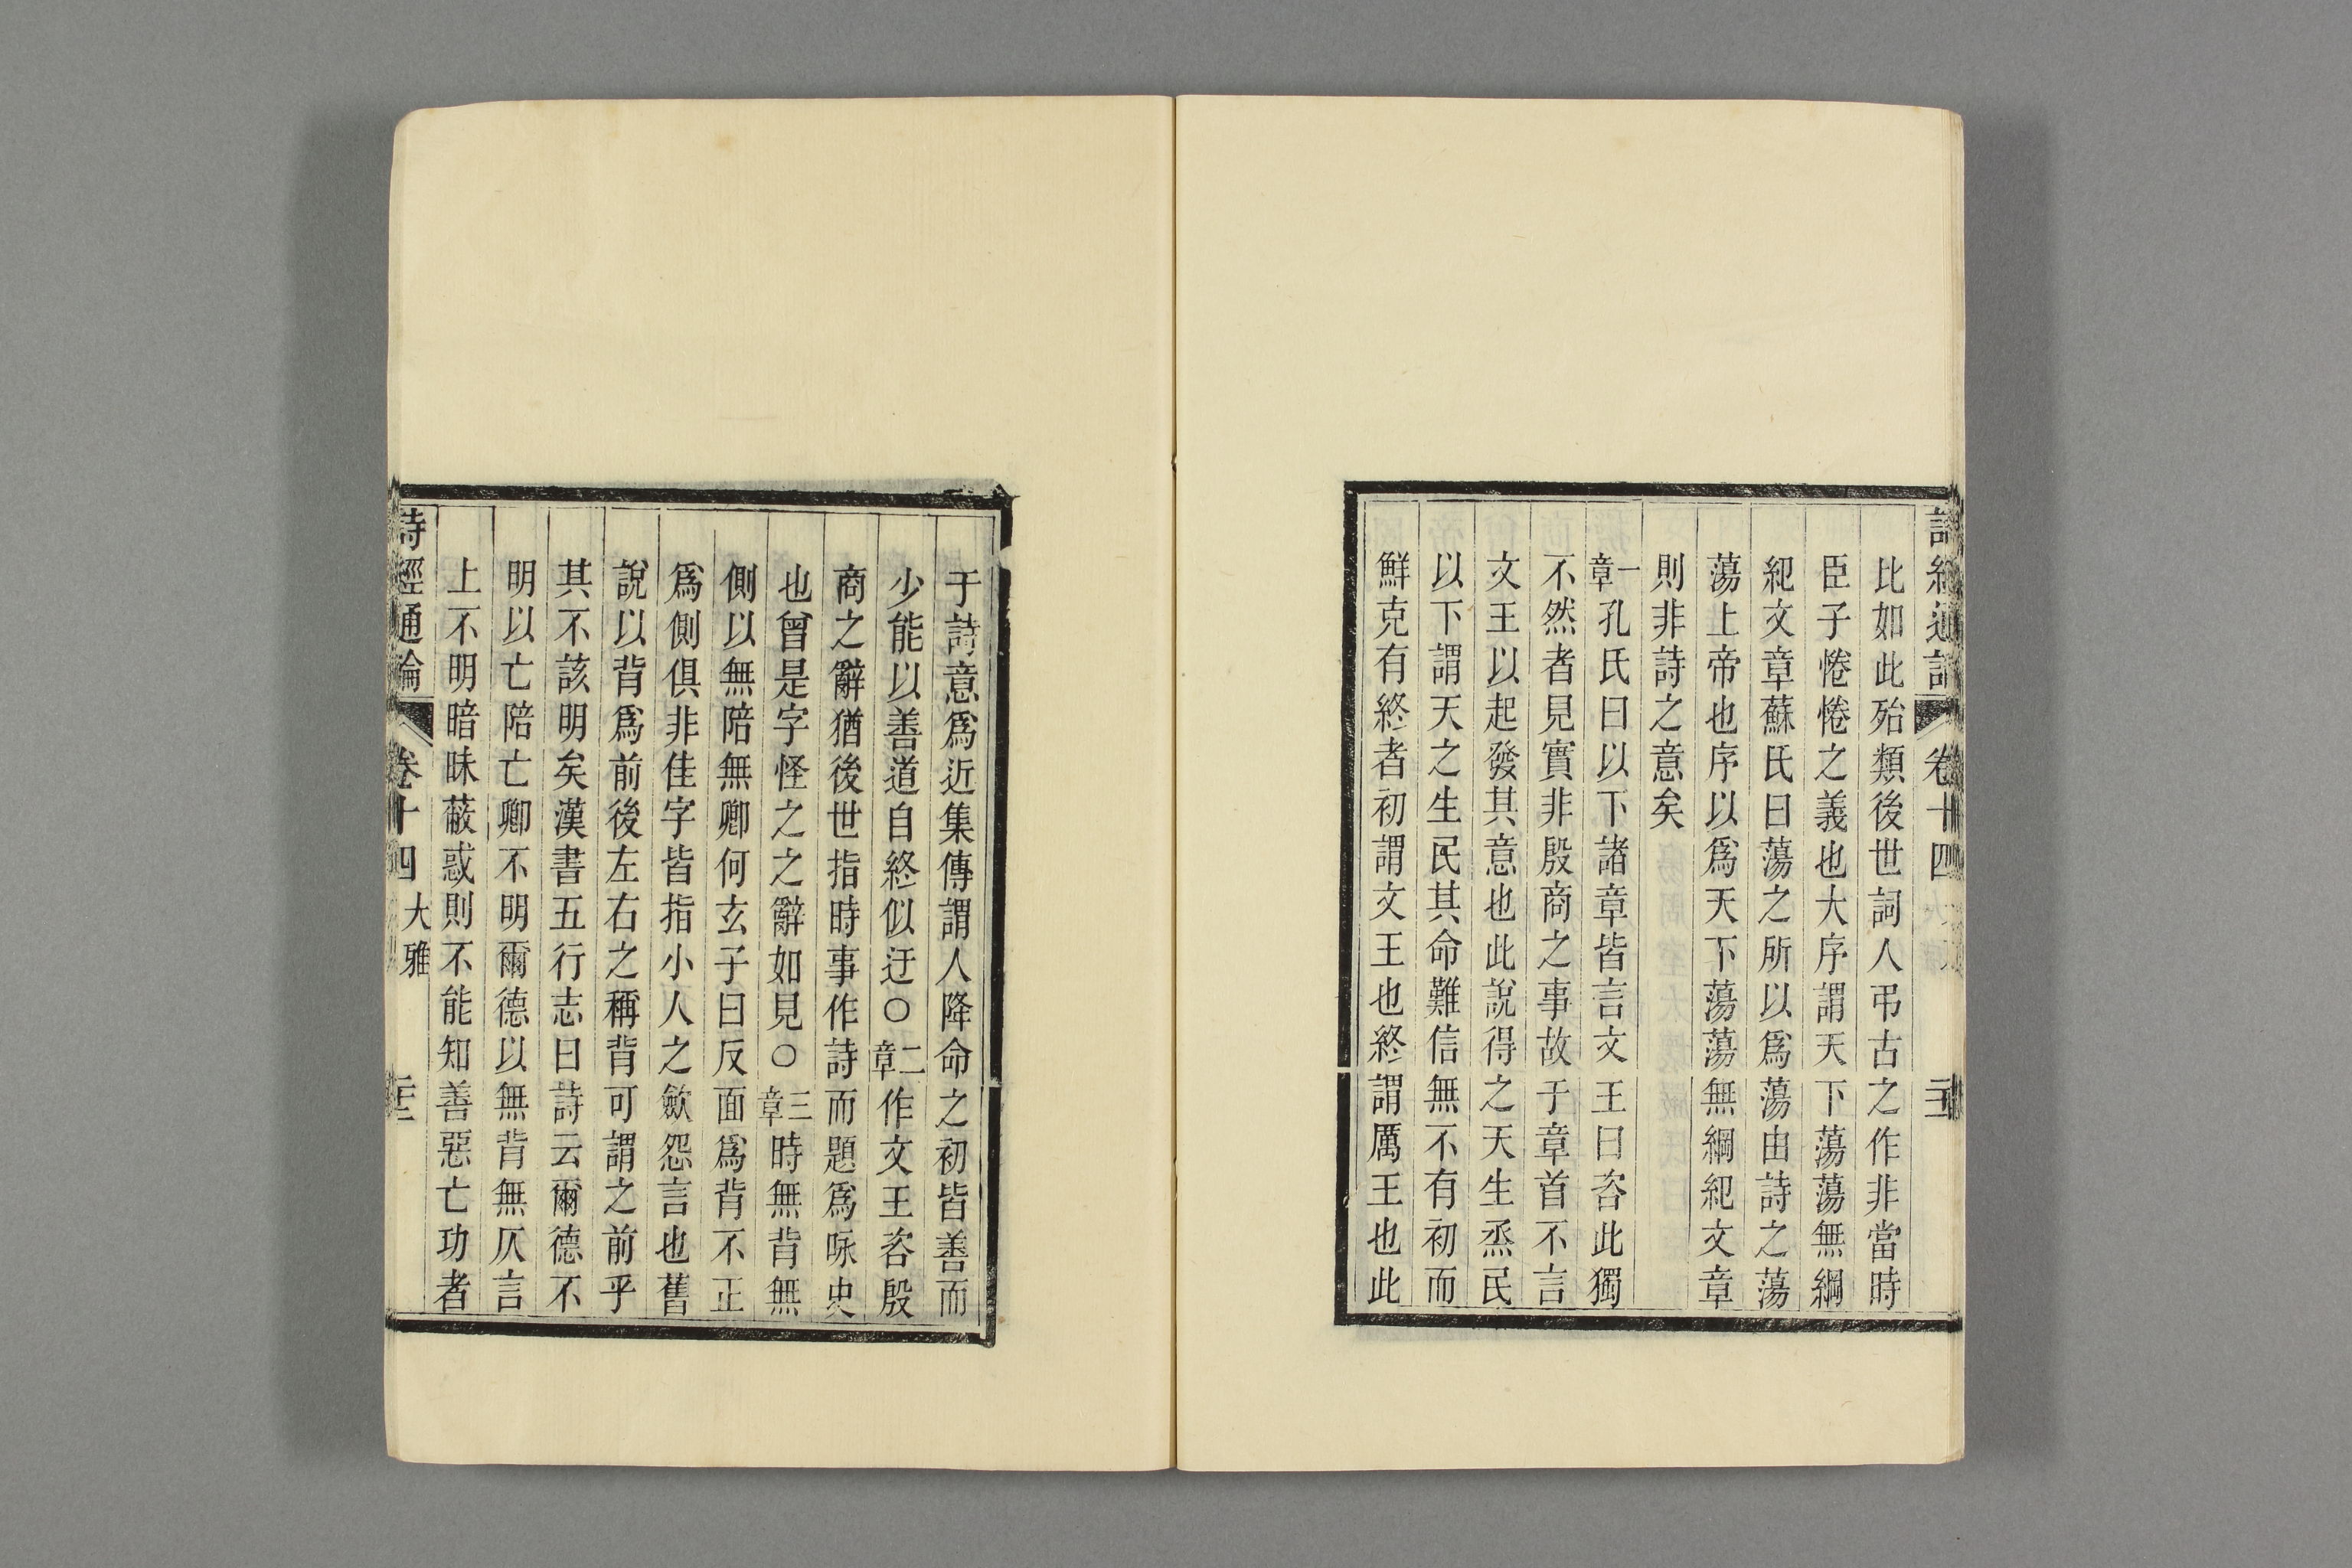 比如此殆類後世詞人弔古之作非當時
臣子惓惓之義也大序謂天下蕩蕩無綱
紀文章蘇氏曰蕩之所以爲蕩由詩之蕩
蕩上帝也序以爲天下蕩蕩無綱紀文章
則非詩之意矣
一章孔氏曰以下諸章皆言文王曰咨此獨
不然者見實非殷商之事故于章首不言
文王以起發其意也此說得之天生烝民
以下謂天之生民其命難信無不有初而
鮮克有終者初謂文王也終謂厲王也此
于詩意爲近集傳謂人降命之初皆善而
少能以善道自終似迂○二章作文王咨殷
商之辭猶後世指時事作詩而題爲咏史
也曾是字怪之之辭如見○三章時無背無
側以無陪無卿何玄子曰反面爲背不正
爲側俱非佳字皆指小人之斂怨言也舊
說以背爲前後左右之稱背可謂之前乎
其不該明矣漢書五行志曰詩云爾德不
明以亡陪亡卿不明爾德以無背無仄言
上不明暗昧蔽惑則不能知善惡亡功者
詩經通論 卷十四 大雅